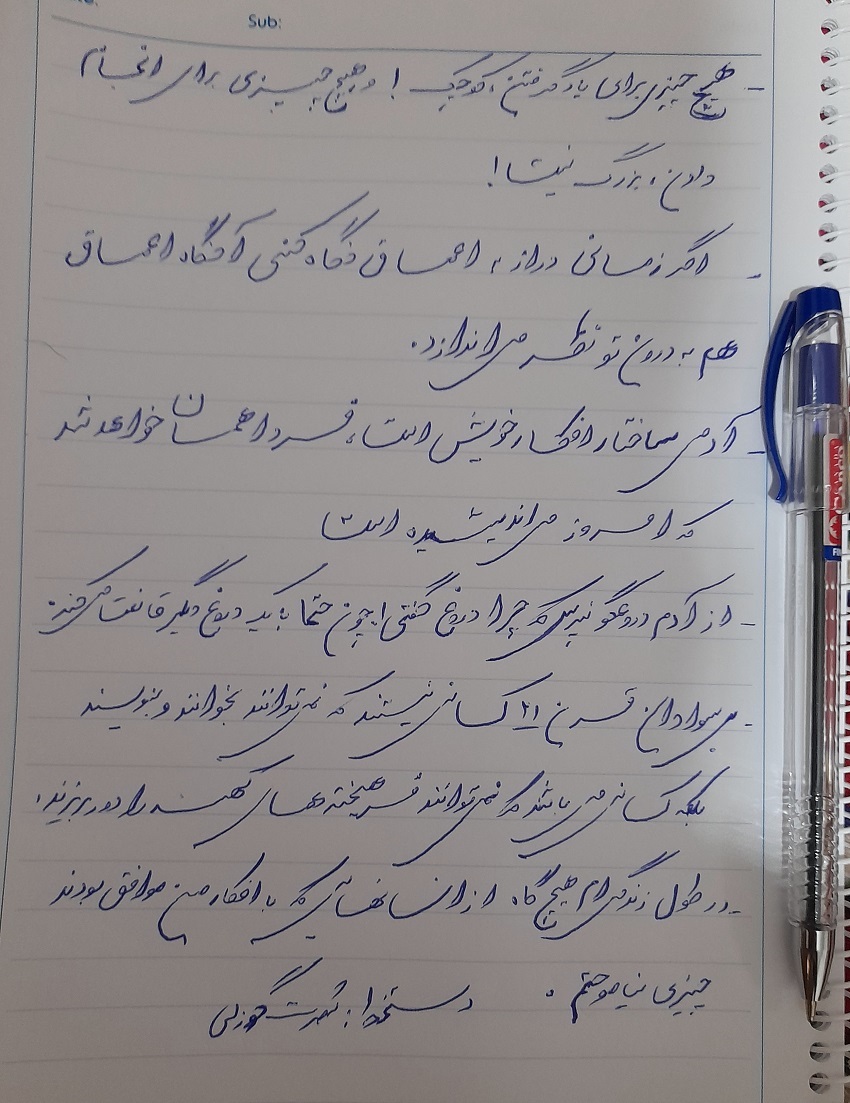 Sub:
- هیچ چیزی برای یادگرفتن، کوچک! و هیچ چیزی برای انجام
دادن، بزرگ نیست!
- اگر زمانی دراز به اعماق نگاه کنی آنگاه اعماق
هم به درون تو نظر می اندازد.
- آدمی ساختار افکار خویش است، فردا همان خواهد شد
که امروز می اندیشیده است
- از آدم دروغگو نپرس که چرا دروغ گفتی! چون حتما باید دروغ دیگر قانعت می کند.
- بی سوادان قرن ۲۱ کسانی نیستند که نمی توانند بخوانند و بنویسند
بلکه کسانی می باشد که نمی توانند فرهیخته های کهنه را دور بریزند.
- در طول زندگی ام هیچ گاه از انسانهایی که با افکار من موافق بودند
چیزی نیاموختم.
دستخط: